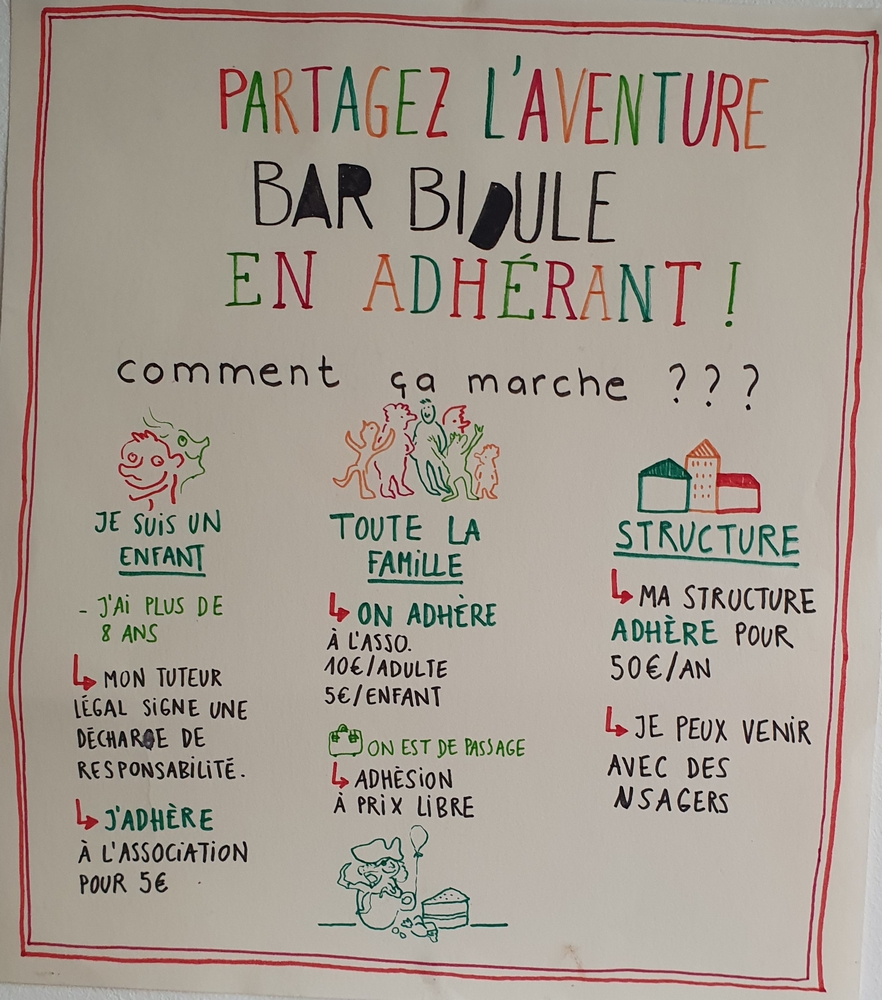 PARTAGEZ L'AVENTURE
BAR BIDULE
EN ADHÉRANT !
comment ça marche ? ? ?
JE SUiS UN
ENFANT
- J'Ai PLUS DE
8 ANS
↳ MON TUTEUR
LÉGAL SiGNE UNE
DÉCHARGE DE
RESPONSABiLiTÉ.
↳ J'ADHÈRE
À L'ASSOCiATiON
POUR 5€
TOUTE LA
FAMiLLE
↳ ON ADHÈRE
À L'ASSO.
10€/ADULTE
5€/ENFANT
ON EST DE PASSAGE
↳ ADHÈSiON
À PRiX LiBRE
STRUCTURE
↳ MA STRUCTURE
ADHÈRE POUR
50€/AN
↳ JE PEUX VENiR
AVEC DES
NSAGERS